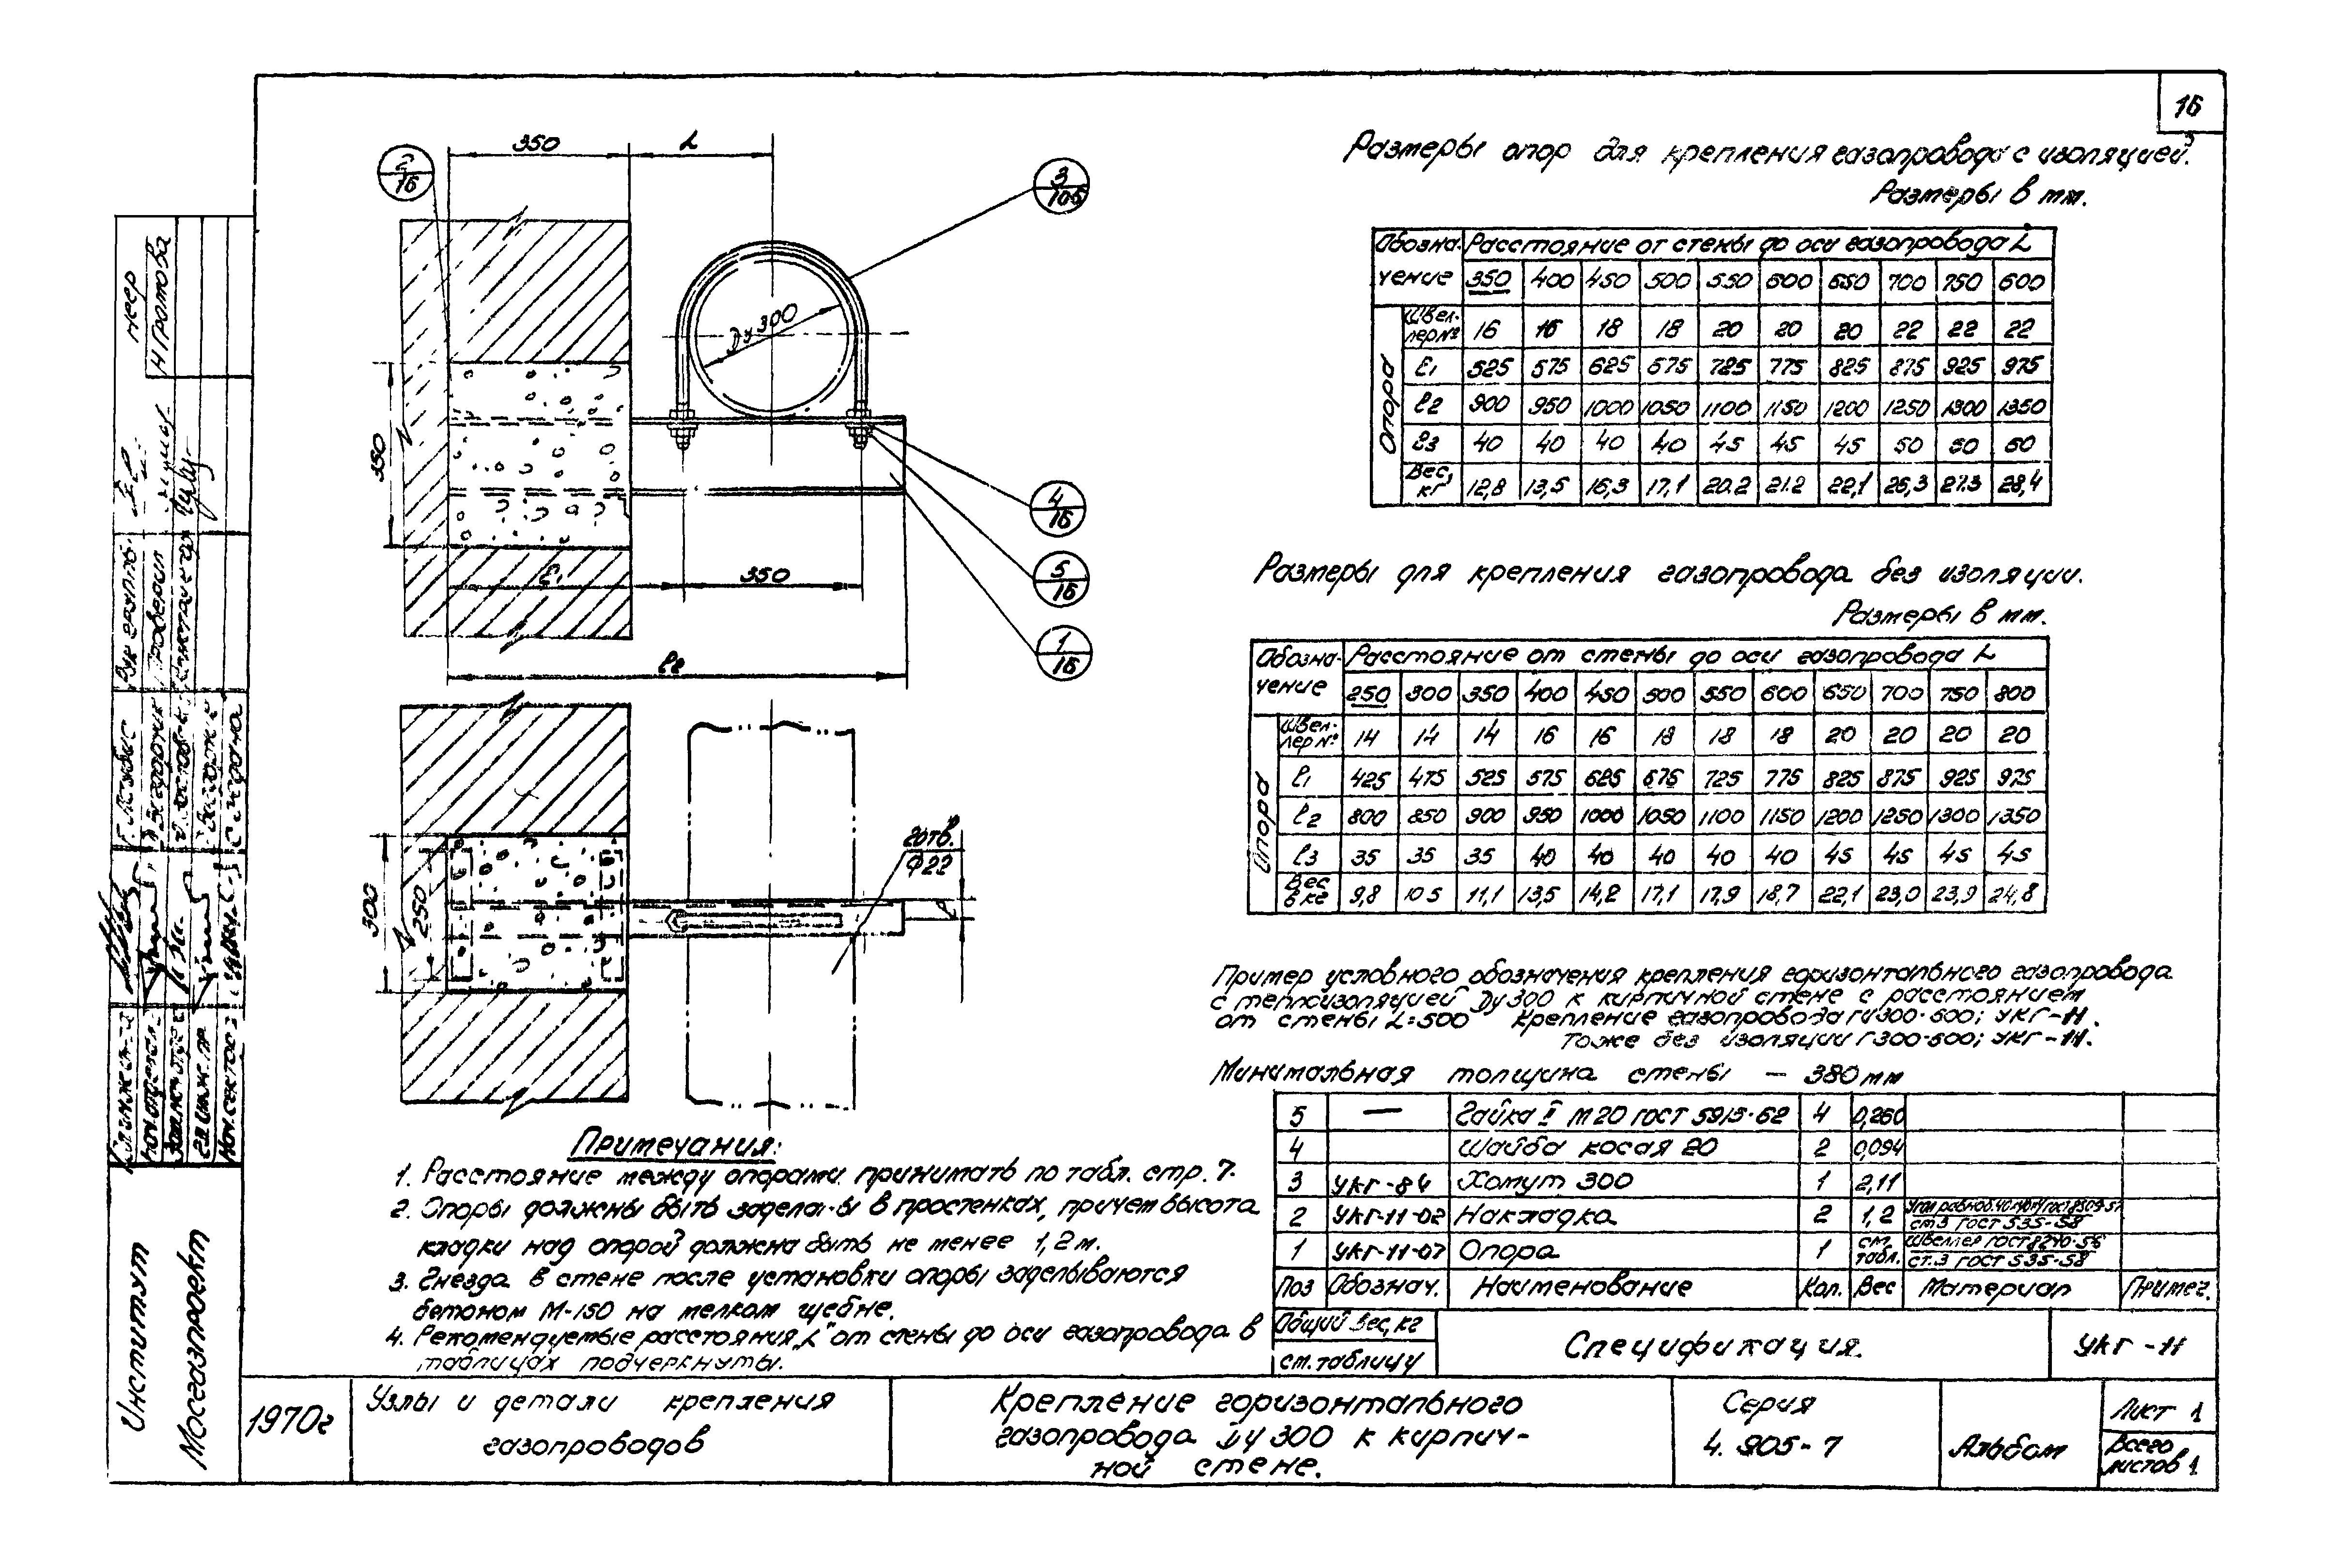 16
350
L
2/16
3/106
Ду 300
350
4/16
5/16
1/16
ℓ1
350
ℓ2
300
250
2 отв.
Ф22
Размеры опор для крепления газопровода с изоляцией.
Размеры в мм.
Обозначение Расстояние от стены до оси газопровода L
350 400 450 500 550 600 650 700 750 800
Опора
Швеллер № 16 16 18 18 20 20 20 22 22 22
ℓ1 525 575 625 675 725 775 825 875 925 975
ℓ2 900 950 1000 1050 1100 1150 1200 1250 1300 1350
ℓ3 40 40 40 40 45 45 45 50 50 50
Вес, кг 12,8 13,5 16,3 17,1 20.2 21.2 22,1 26,3 27.3 28,4
Размеры для крепления газопровода без изоляции.
Размеры в мм.
Обозначение Расстояние от стены до оси газопровода L
250 300 350 400 450 500 550 600 650 700 750 800
Опора
Швеллер № 14 14 14 16 16 18 18 18 20 20 20 20
ℓ1 425 475 525 575 625 675 725 775 825 875 925 975
ℓ2 800 850 900 950 1000 1050 1100 1150 1200 1250 1300 1350
ℓ3 35 35 35 40 40 40 40 40 45 45 45 45
Вес в кг 9,8 10 5 11,1 13,5 14,2 17,1 17,9 18,7 22,1 23,0 23,9 24,8
Пример условного обозначения крепления горизонтального газопровода
с теплоизоляцией Ду 300 к кирпичной стене с расстоянием
от стены L=500 Крепление газопровода ГИ300-500; УКГ-11.
Тоже без изоляции Г300-500; УКГ-11.
Минимальная толщина стены — 380мм
Примечания:
1. Расстояние между опорами принимать по табл. стр. 7.
2. Опоры должны быть заделаны в простенках, причем высота
кладки над опорой должна быть не менее 1,2м.
3. Гнезда в стене после установки опоры заделываются
бетоном М-150 на мелком щебне.
4. Рекомендуемые расстояния „L" от стены до оси газопровода в
таблицах подчеркнуты.
5 — Гайка II М20 ГОСТ 5915-62 4 0,260
4 Шайба косая 20 2 0,094
3 УКГ-84 Хомут 300 1 2,11
2 УКГ-11-02 Накладка 2 1,2 ст3 ГОСТ 535-58
1 УКГ-11-01 Опора 1 см. табл. Швеллер ГОСТ 8240-56 ст.3 ГОСТ 535-58
Поз Обознач. Наименование Кол. Вес Материал Примеч.
Общий вес, кг
см. таблицу
Спецификация.
УКГ-11
Институт
Мосгазпроект
1970г
Узлы и детали крепления
газопроводов
Крепление горизонтального
газопровода Ду 300 к кирпич-
ной стене.
Серия
4.905-7
Альбом
Лист 1
Всего
листов 1